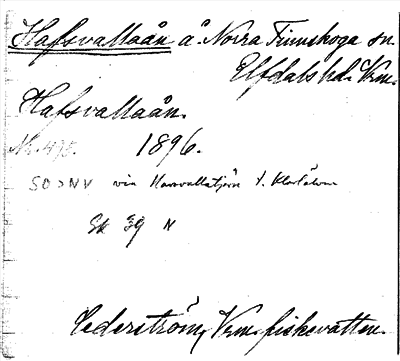 Hafsvallaån å. Norra Finnskoga sn.
Elfdals hd. Vrm.
Hafsvallaån.
Nr. 475. 1896.
SO>NV via Havsvallatjärn t. Klarälven
Ek 39 N
Cederström, Vrm. fiskevatten.